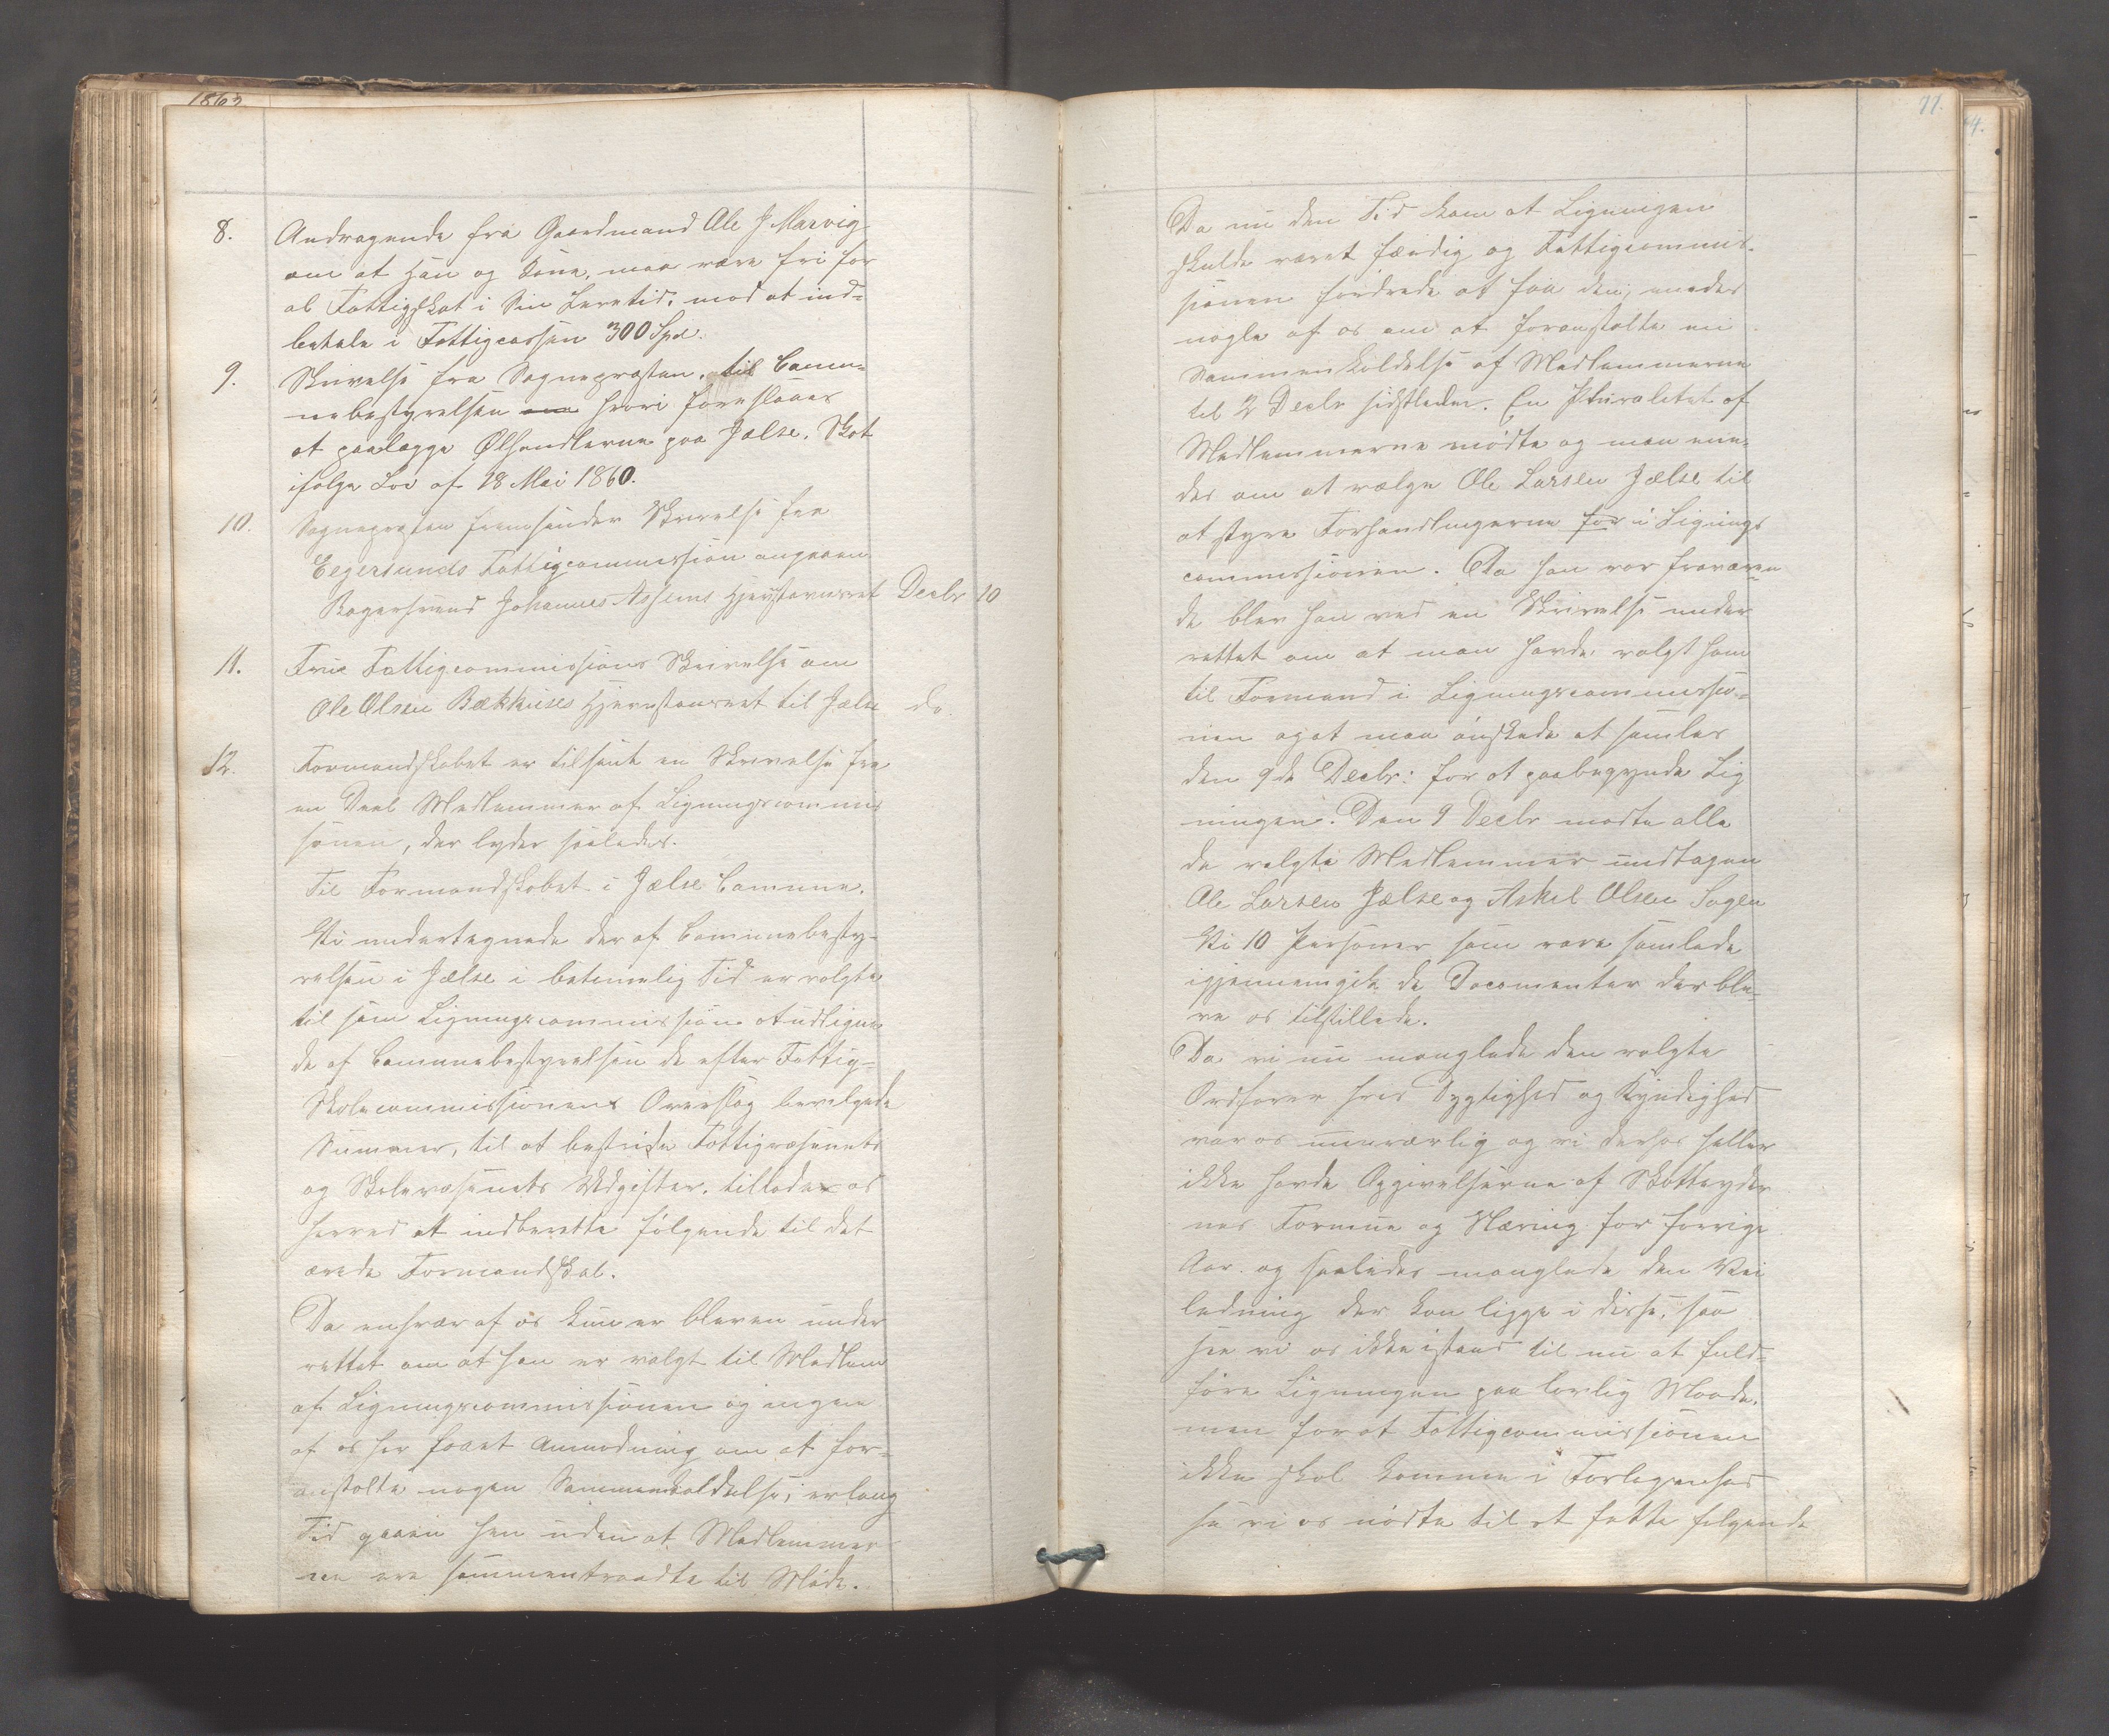 1863
8. Andragende fra Gaardmand Ole J Marvig
om at han og Kone, maa være fri for
al Fattigskat i Sin Levetid, mod at ind=
betale i Fattigcassen 300 Spd.
9. Skrivelse fra Sognepræsten, til Comm=
nebestyrelsen om hvori foreslaaes
at paalægge Ølhandlerne paa Jælse, Skat
ifølge Lov af 18 Mai 1860.
10. Sognepræsten fremsender Skrivelse fra
Egersunds Fattigcommission angaaen
Johannes Hjemstavnsret Decbr 10
11. Fattigcommissions Skrivelse om
Ole Olsen Bækhuses Hjemstavnsret til Jælse do
12. Formandskabet er tilsendt en Skrivelse fra
en Deel Medlemmer af Ligningscommis
sionen, der lyder saaledes.
Til Formandskabet i Jælse Commune.
Vi undertegnede der af Communebesty=
relsen i Jælse i betimelig Tid er valgte
til som Ligningscommission at udligne
de af Communebestyrelsen de efter Fattig=
Skolecommissionens Overslag bevilgede
Summer, til at bestride Fattigvæsenets
og Skolevæsenets Udgifter, tillader os
herved at indberette følgende til det
ærede Formandskab.
Da enhver af os kun er bleven under
rettet om at han er valgt til Medlem
af Ligningscommissionen og ingen
af os har faaet Anmodning om at for=
anstalte nogen Sammenkaldelse; er lang
Tid gaaen hen uden at Medlemmer
ne ere sammentraadte til Møde.
77.
Da nu den Tid kom at Ligningen
skulde været færdig og Fattigcommis=
sionen fordrede at faa den, enedes
nogle af os om at foranstalte en
Sammenkaldelse af Medlemmerne
til 2 Decbr sidstleden. En Pluralitet af
Medlemmerne mødte og man ene=
des om at vælge Ole Larsen Jælse til
at styre Forhandlingerne for i Lignings
commissionen. Da han var fraværen
de blev han ved en Skrivelse under
rettet om at man havde valgt ham
til Formand i Ligningscommissio=
nen og at man ønskede at samles
den 9de Decbr: for at paabegynde Lig
ningen. Den 9 Decbr mødte alle
de valgte Medlemmer undtagen
Ole Larsen Jælse og Askel Olsen
Vi 10 Personer som vare samlede
igjennemgik de Documenter der ble=
ve os tilstillede.
Da vi nu manglede den valgte
Ordfører hvis Dygtighed og Kyndighed
var os uundværlig og vi derhos heller
ikke havde Opgivelserne af Skatteyder
nes Formue og Næring for forrige
Aar. og saaledes manglede den Vei
ledning der kan ligge i disse, saa
see vi os ikke istand til nu at fuld=
føre Ligningen paa lovlig Maade,
men for at Fattigcommissionen
ikke skal komme i Forlegenhed
se vi os nødte til at fatte følgende